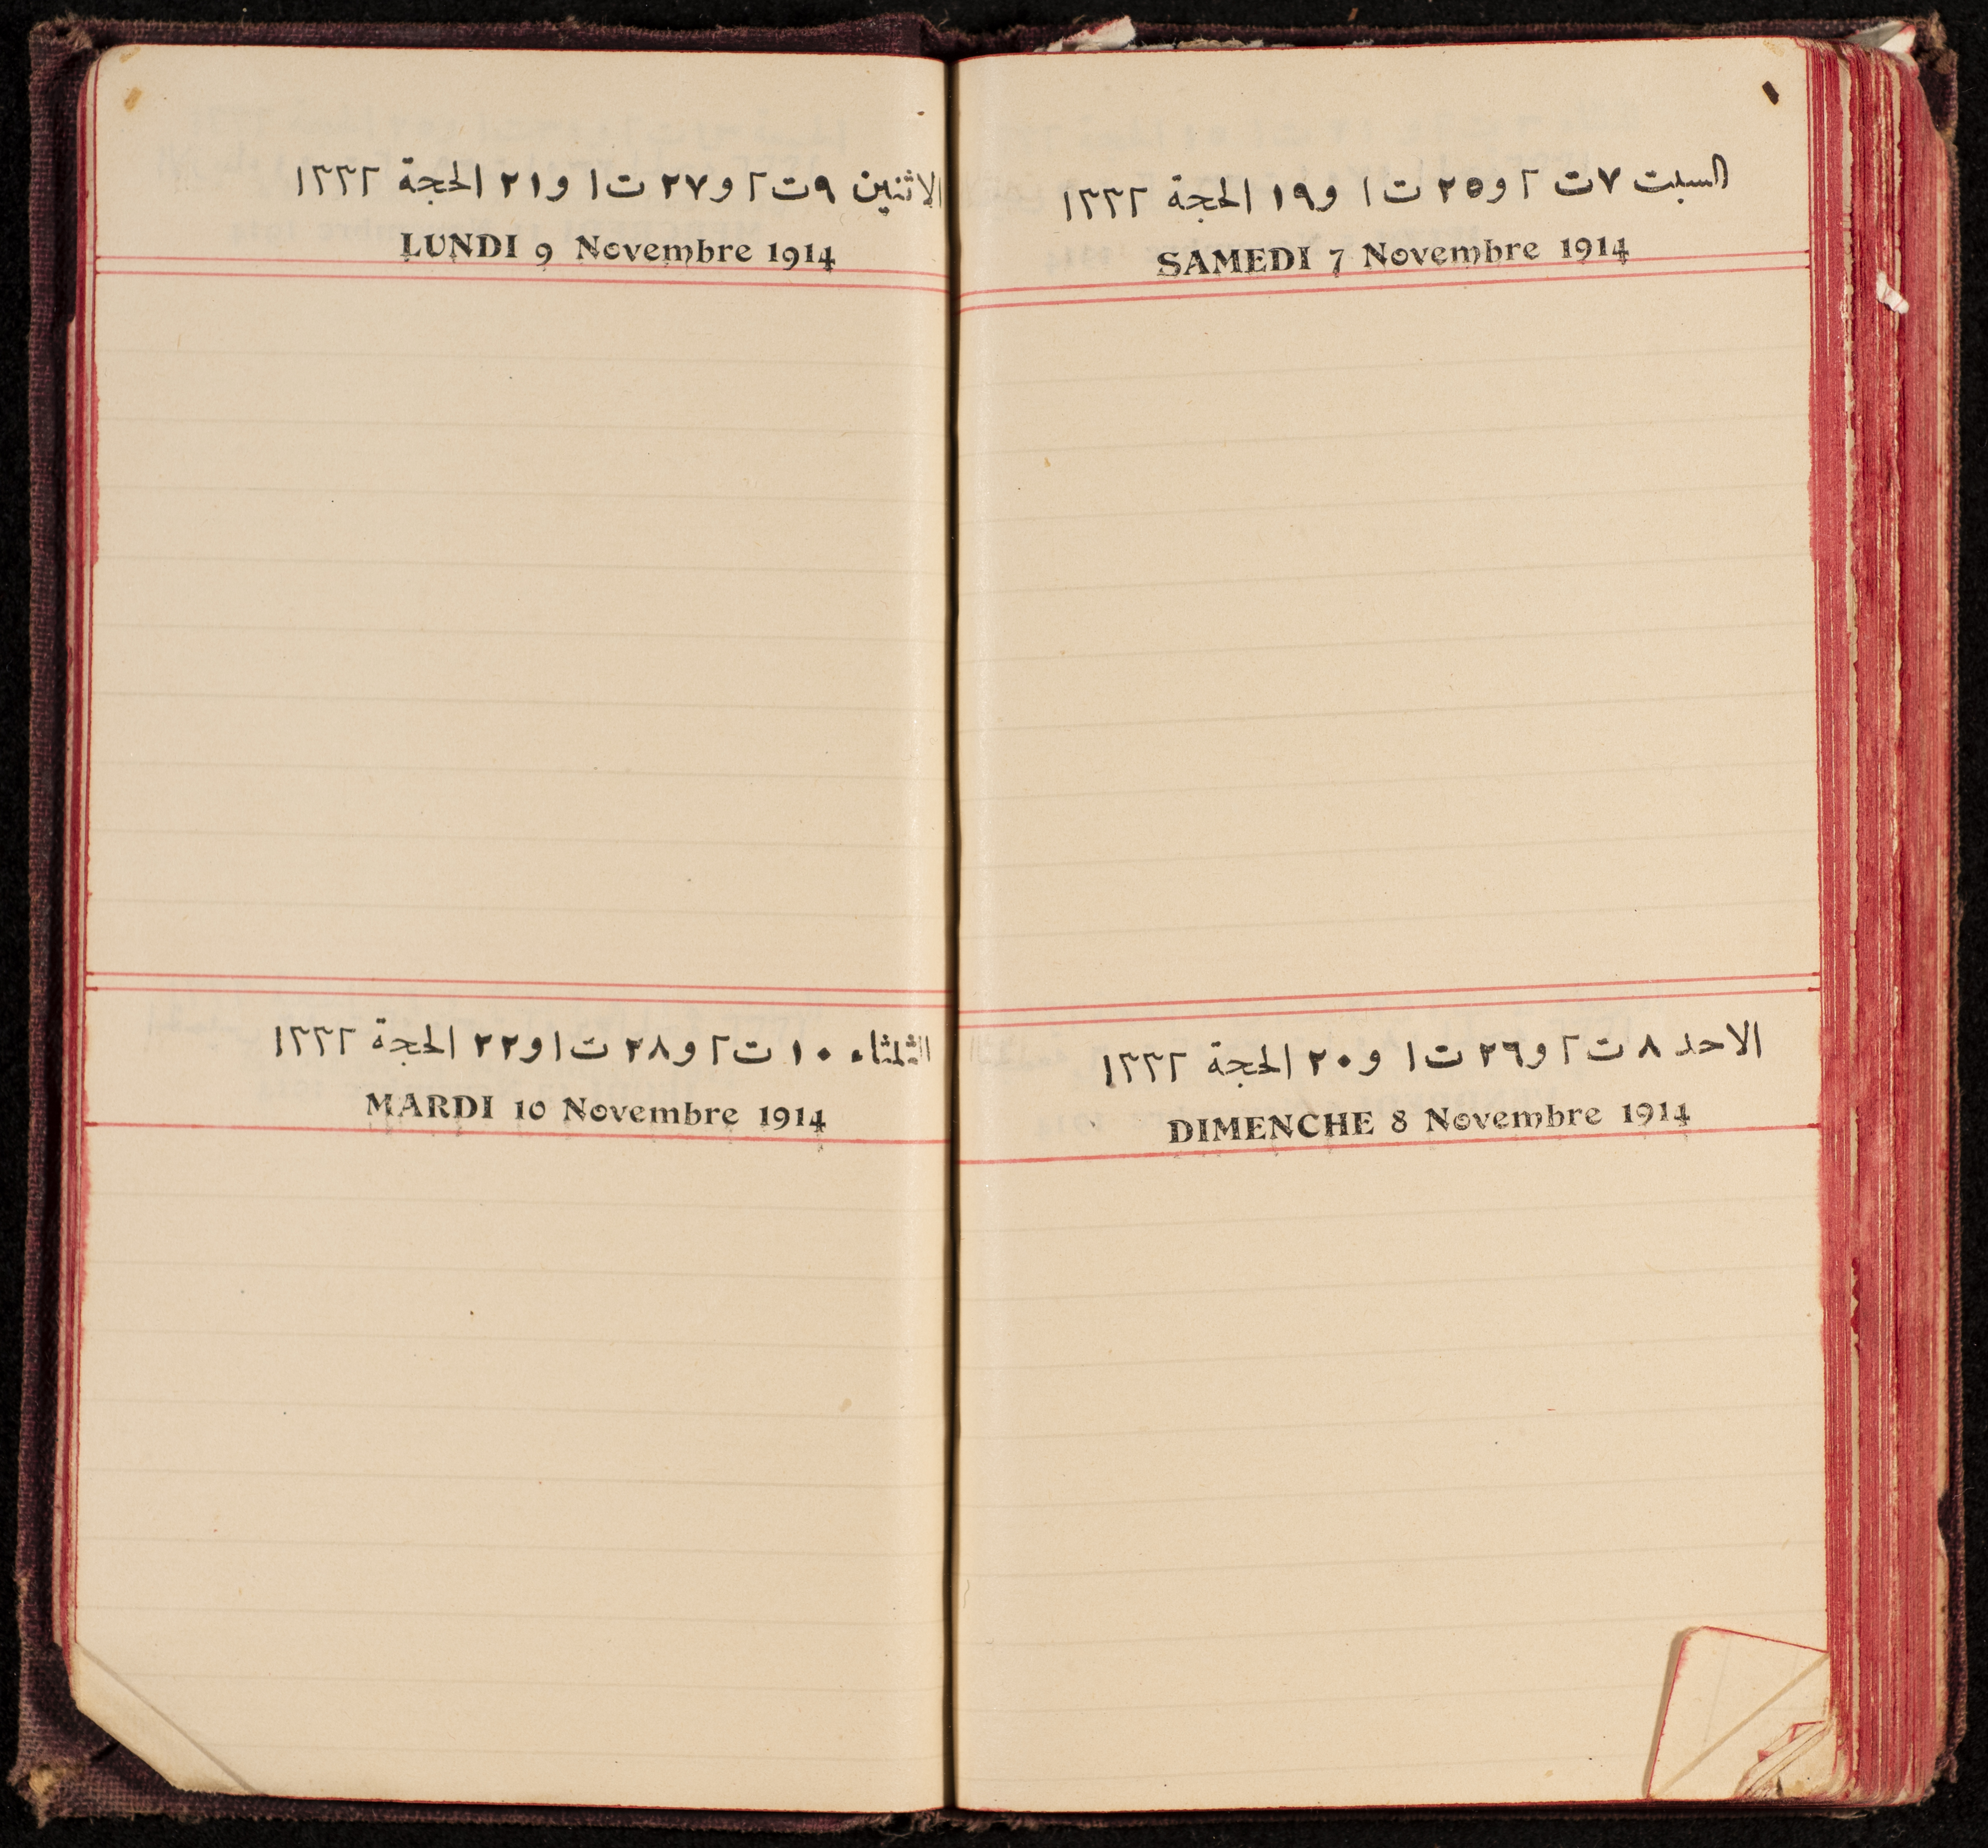 السبت ٧ ت ٢ و ٢٥ ت ١ و ١٩ الحجة ١٣٣٢
SAMEDI 7 Novembre 1914
الاحد ٨ ت ٢ و ٢٦ ت ١ و ٢٠ الحجة ١٣٣٢
DIMENCHE 8 Novembre 1914
الاثنين ٩ ت ٢ و ٢٧ ت ١ و ٢١ الحجة ١٣٣٢
LUNDI 9 Novembre 1914
الثلثاء ١٠ ت ٢ و ٢٨ ت ١ و ٢٢ الحجة ١٣٣٢
MARDI 10 Novembre 1914